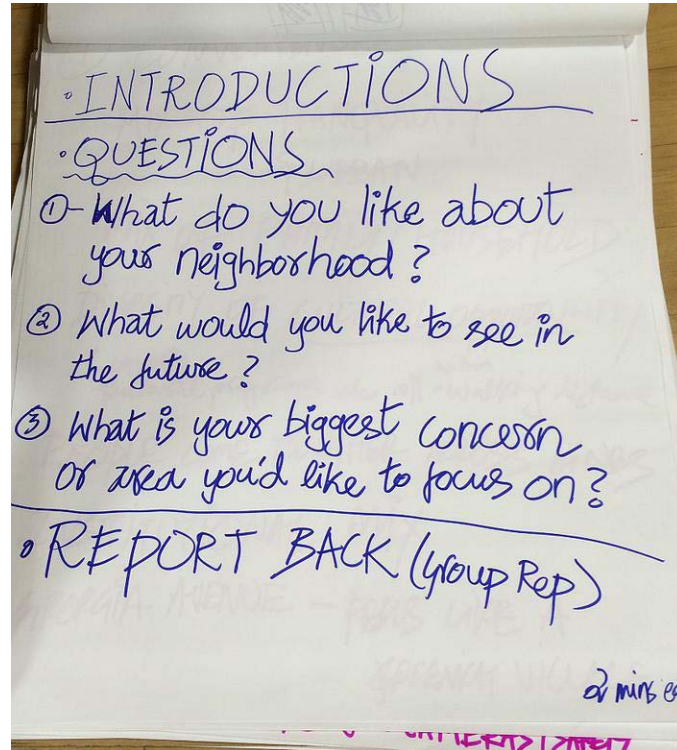 • INTRODUCTIONS
• QUESTIONS
① - What do you like about
your neighborhood?
② What would you like to see in
the future?
③ What is your biggest concern
or area you'd like to focus on?
• REPORT BACK (Group Rep)
2 mins